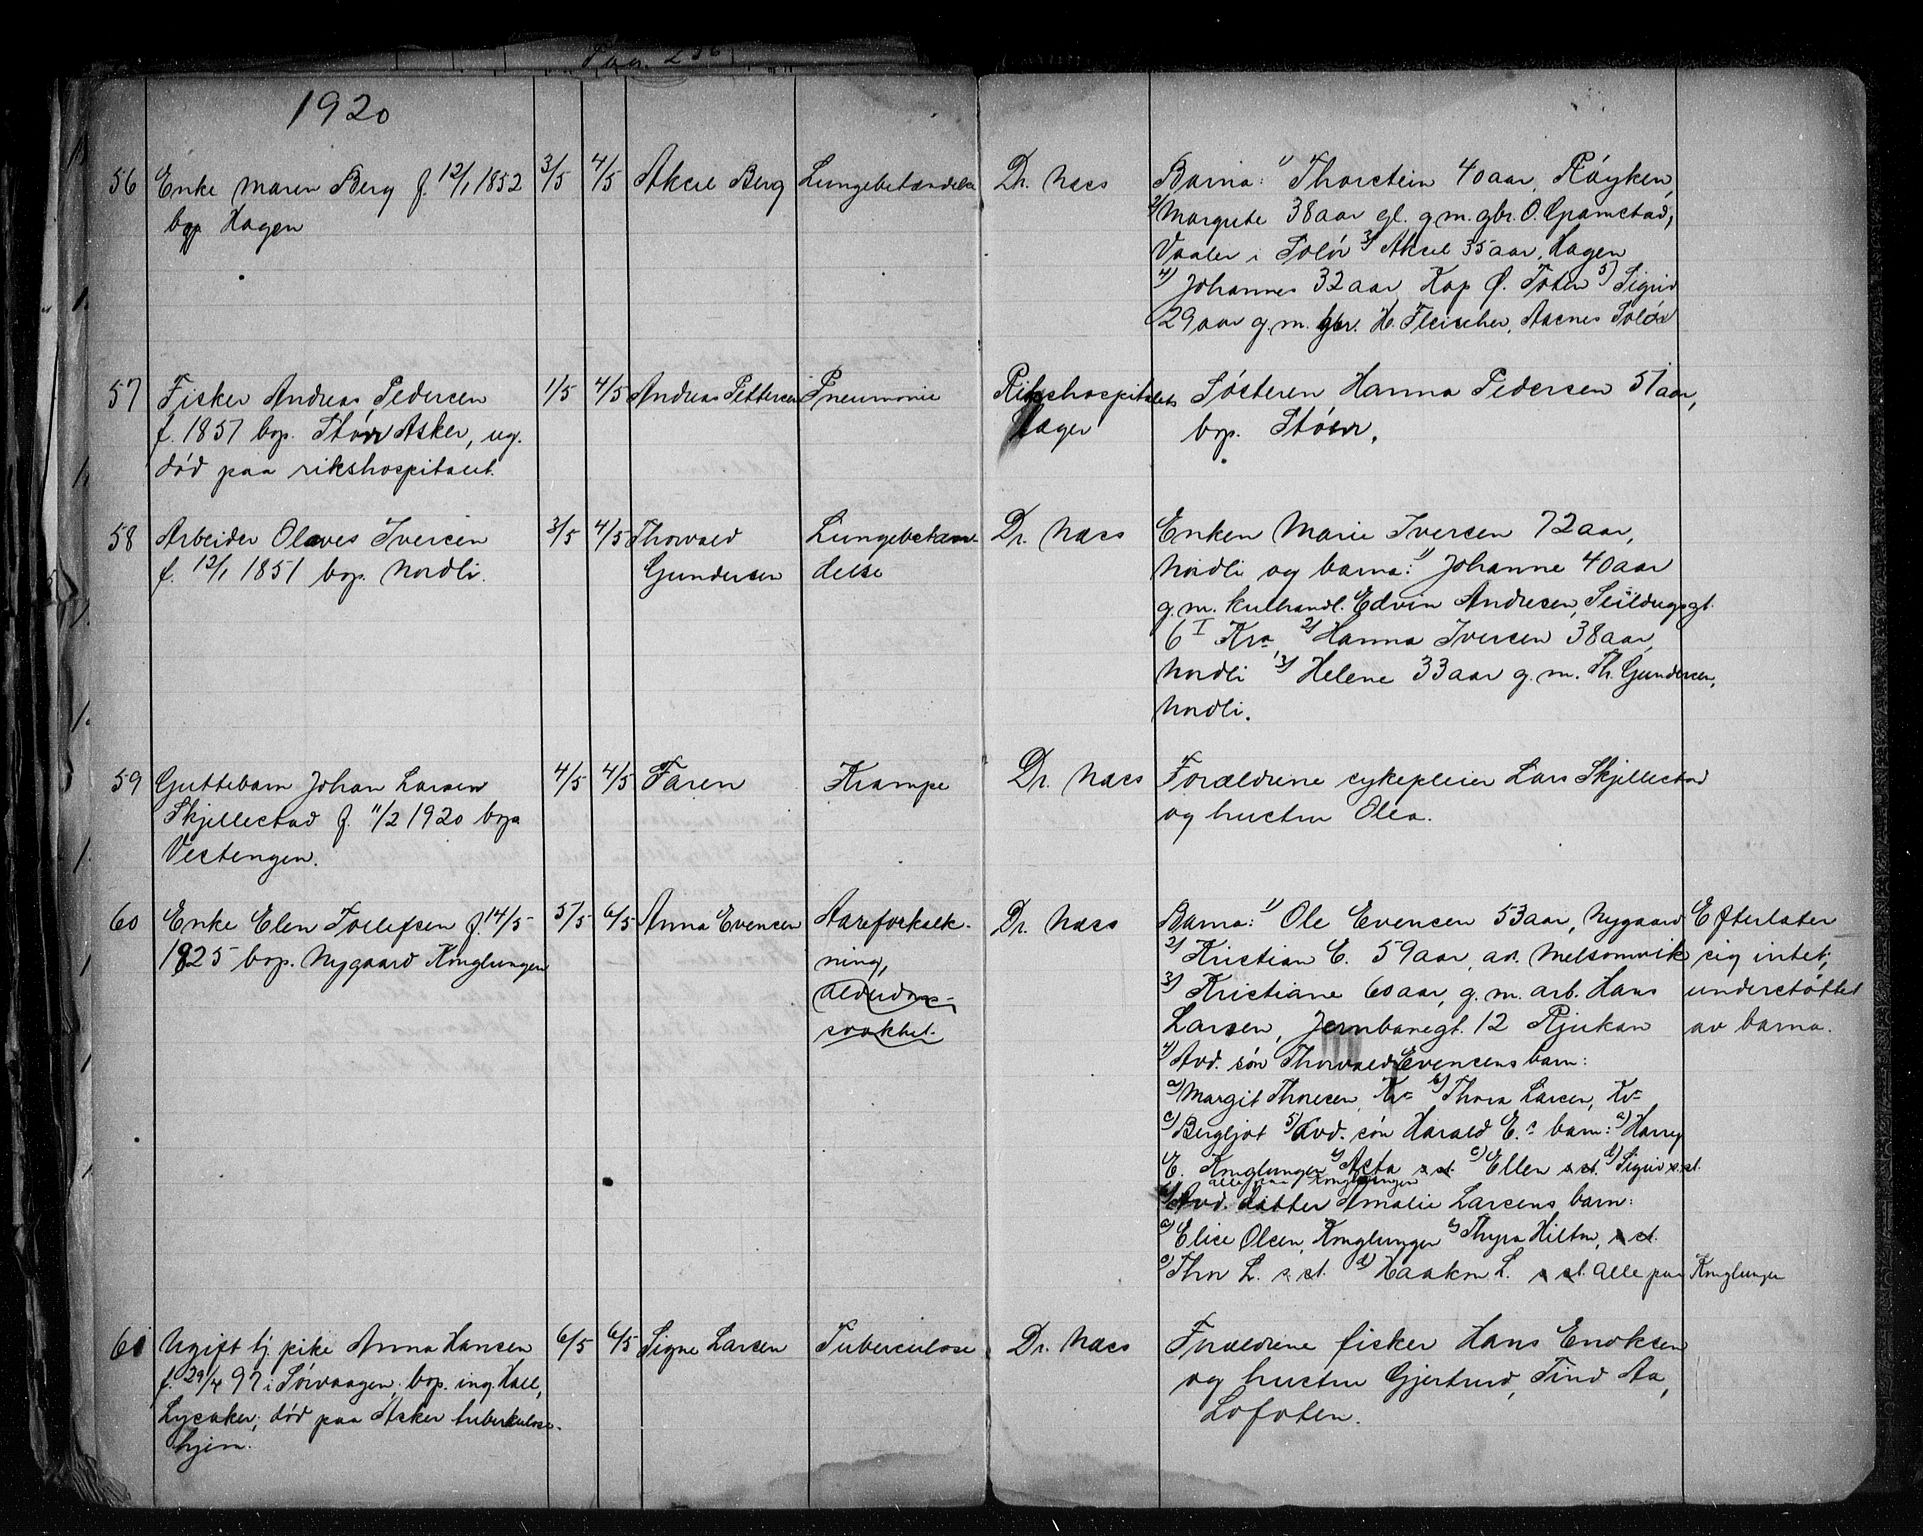 Pag. 256
1920
56 Enke Maren Berg f. 12/1 1852 3/5 4/5 Aksel Berg Lungebetændelse Dr. Næss Barna: 1) Thorstein 40 aar, Røyken,
bop Hagen 2) Margrete 38 aar gl. g.m. gbr. O. Gramstad,
Vaaler i Solør 3) Aksel 35 aar, Hagen
4) Johannes 32 aar Kap Ø. Toten 5) Sigrid
29 aar g.m. gbr. H. Fleischer, Aasnes Solør
57 Fisker Andreas Pedersen 1/5 4/5 Andreas Pettersen Pneumonie Rikshospitalets Søsteren Hanna Pedersen 51 aar,
f. 1857 bop. Asker, ug. Læger bop.
død paa rikshospitalet.
58 Arbeider Olaves Iversen 3/5 4/5 Thorvald Lungebetæn- Dr. Næss Enken Marie Iversen 72 aar,
f. 12/1 1851 bop. Nordli. Gundersen delse Nordli og barna: 1) Johanne 40 aar
g.m. kulhandl. Edvin Andresen, Seildugsgt.
6 I Kra 2) Hanna Iversen 38 aar,
Nordli 3) Helene 33 aar g.m. Th. Gundersen,
Nordli.
59 Guttebarn Johan Larsen 4/5 4/5 Faren Krampe Dr. Næss Forældrene sykepleier Lars Skjellestad
Skjellestad f. 11/2 1920 bopa og hustru Olea.
Vestengen.
60 Enke Elen Tollefsen f. 14/5 5/5 6/5 Anna Evensen Aareforkalk- Dr. Næss Barna: 1) Ole Evensen 53 aar, Nygaard Efterlater
1825 bop. Nygaard Konglungen ning, 2) Kristian E. 59 aar, Melsomvik sig intet;
alderdoms- 3) Kristiane 60 aar, g.m. arb. Hans understøttet
svakhet. Larsen, Jernbanegt. 12 Rjukan av barna.
4) Avd. søn Thorvald Evensens barn:
a) Margit Thoresen, Kr= b) Thora Larsen, Kr=
c) Bergljot 5) Avd. søn Harald E.s barn: a) Harry
E. Konglungen b) Asta s.st. c) Ellen s.st. d) Sigrid s.st.
alle paa Konglungen
6) Avd. datter Amalie Larsens barn:
a) Elise Olsen, Konglungen b) Thyra Hilton, s.st.
c) Thor L. s.st. d) Haakon L. s.st. alle paa Konglungen
61 Ugift tj. pike Anna Hansen 6/5 6/5 Signe Larsen Tuberculose Dr. Næss Forældrene fisker Hans Enoksen
f. 29/4 97 i Sørvaagen; bop. ing. Hall, og hustru Gjertrud, Tind Aa,
Lysaker; død paa Asker tuberkulose- Lofoten.
hjem.